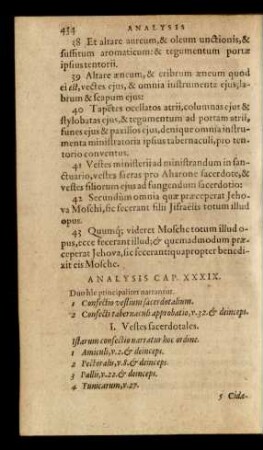 434 ANALYSIS
38 Et altare aureum, & oleum unctionis, &
suffitum aromaticum: & tegumentum portæ
ipsius tentorii.
39 Altare æneum, & cribrum æneum quod
ei est, vectes ejus, & omnia instrumenta ejus, la-
brum & scapum ejus:
40 Tapetes ocellatos atrii, columnas ejus &
stylobatas ejus, & tegumentum ad portam atrii,
funes ejus & paxillos ejus, denique omnia instru-
menta ministratoria ipsius tabernaculi, pro ten-
torio conventus.
41 Vestes ministerii ad ministrandum in san-
ctuario, vestes sacras pro Aharone sacerdote, &
vestes filiorum ejus ad fungendum sacerdotio:
42 Secundum omnia quæ præceperat Jeho-
va Moschi, sic fecerant filii Jisraëlis totum illud
opus.
43 Quumq; videret Mosche totum illud o-
pus, ecce fecerant illud; & quemadmodum præ-
ceperat Jehova, sic fecerant: quapropter benedi-
xit eis Mosche.
ANALYSIS CAP. XXXIX.
Duo hîc principaliter narrantur.
1 Confectio vestium sacerdotalium.
2 Confecti tabernaculi approbatio, v. 32. & deinceps.
I. Vestes sacerdotales.
Istarum confectio narratur hoc ordine.
1 Amiculi, v. 2. & deinceps.
2 Pectoralis, v. 8. & deinceps.
3 Pallii, v. 22. & deinceps.
4 Tunicarum, v. 27.
5 Cida-